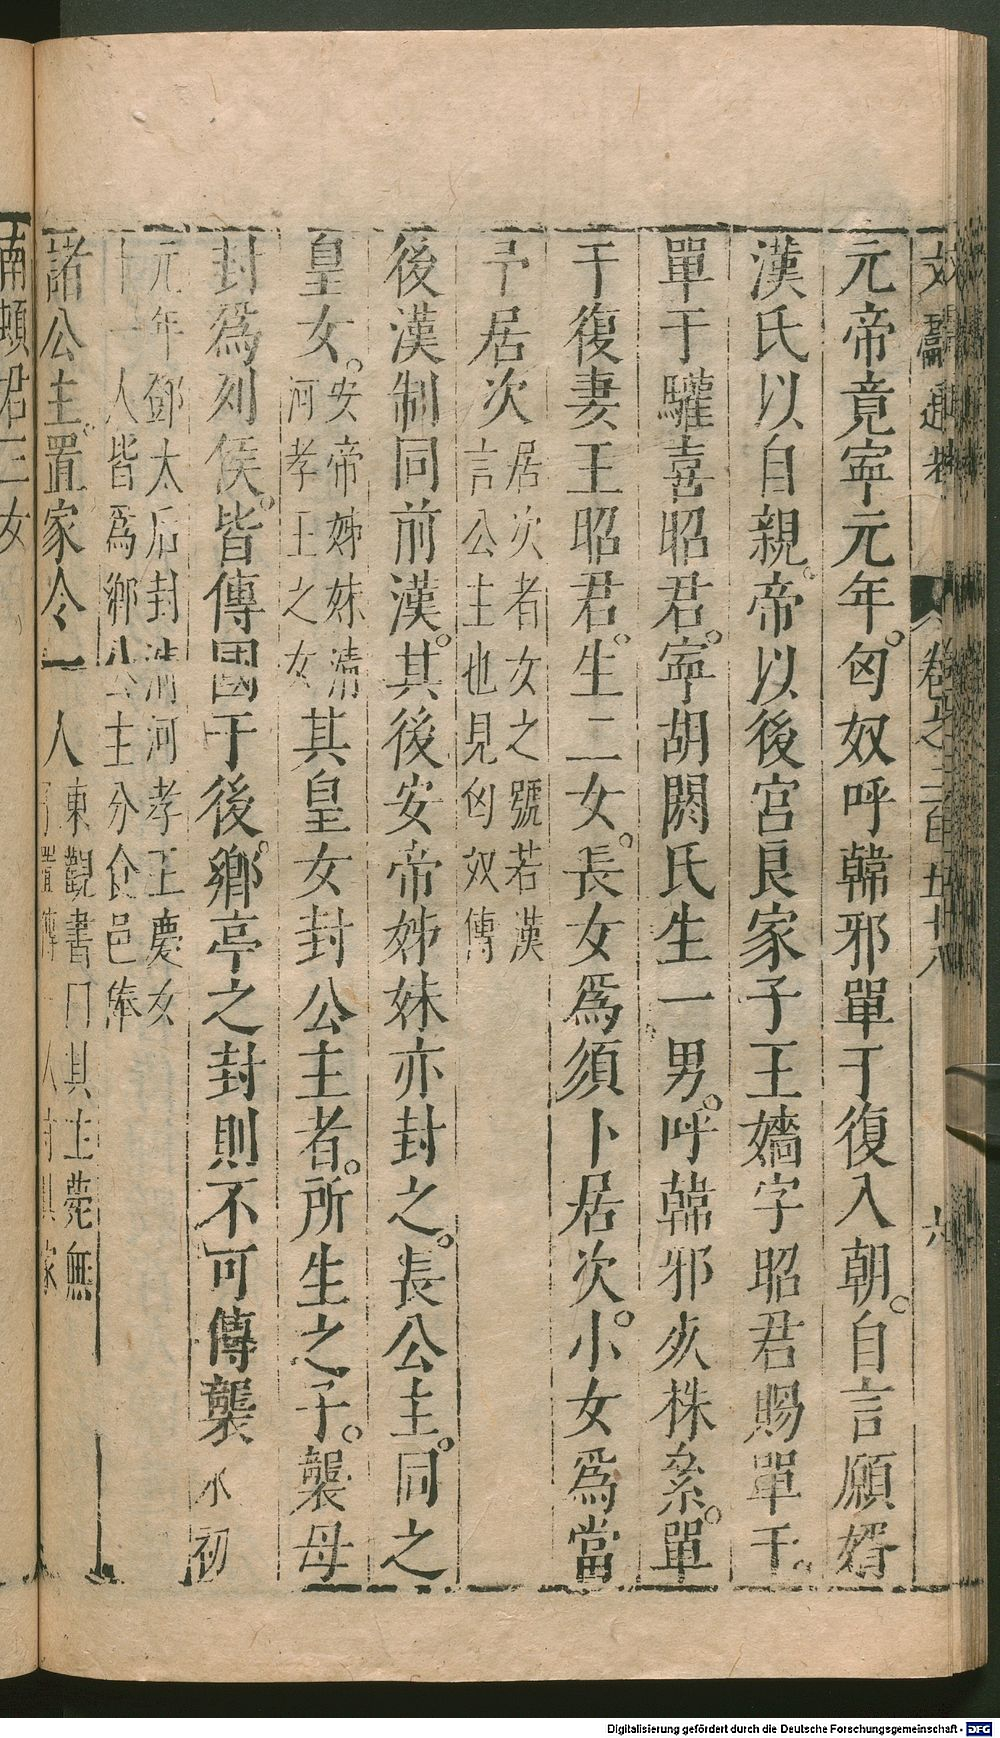 文獻通考 卷之二百五十八 六
元帝竟寧元年匈奴呼韓邪單于復入朝自言願婿
漢氏以自親帝以後宮良家子王嬙字昭君賜單于
單于驩喜昭君寧胡閼氏生一男呼韓邪死株絫單
于復妻王昭君生二女長女爲須卜居次小女爲當
于居次居次者女之號若漢
言公主也見匈奴傳
後漢制同前漢其後安帝姊妹亦封之長公主同之
皇女安帝姊妹清
河孝王之女其皇女封公主者所生之子襲母
封爲列侯皆傳國于後鄉亭之封則不可傳襲永初
元年鄧太后封清河孝王慶女
十一人皆爲鄉公主分食邑俸
諸公主置家令一人東觀書曰其主薨無
置傅一人守其家
南頓君三女
Digitalisierung gefördert durch die Deutsche Forschungsgemeinschaft - DFG